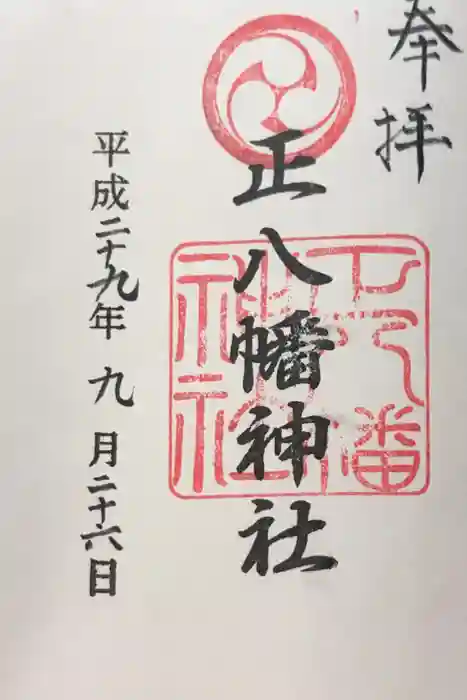 奉拝
正八幡神社
平成二十九年九月二十六日